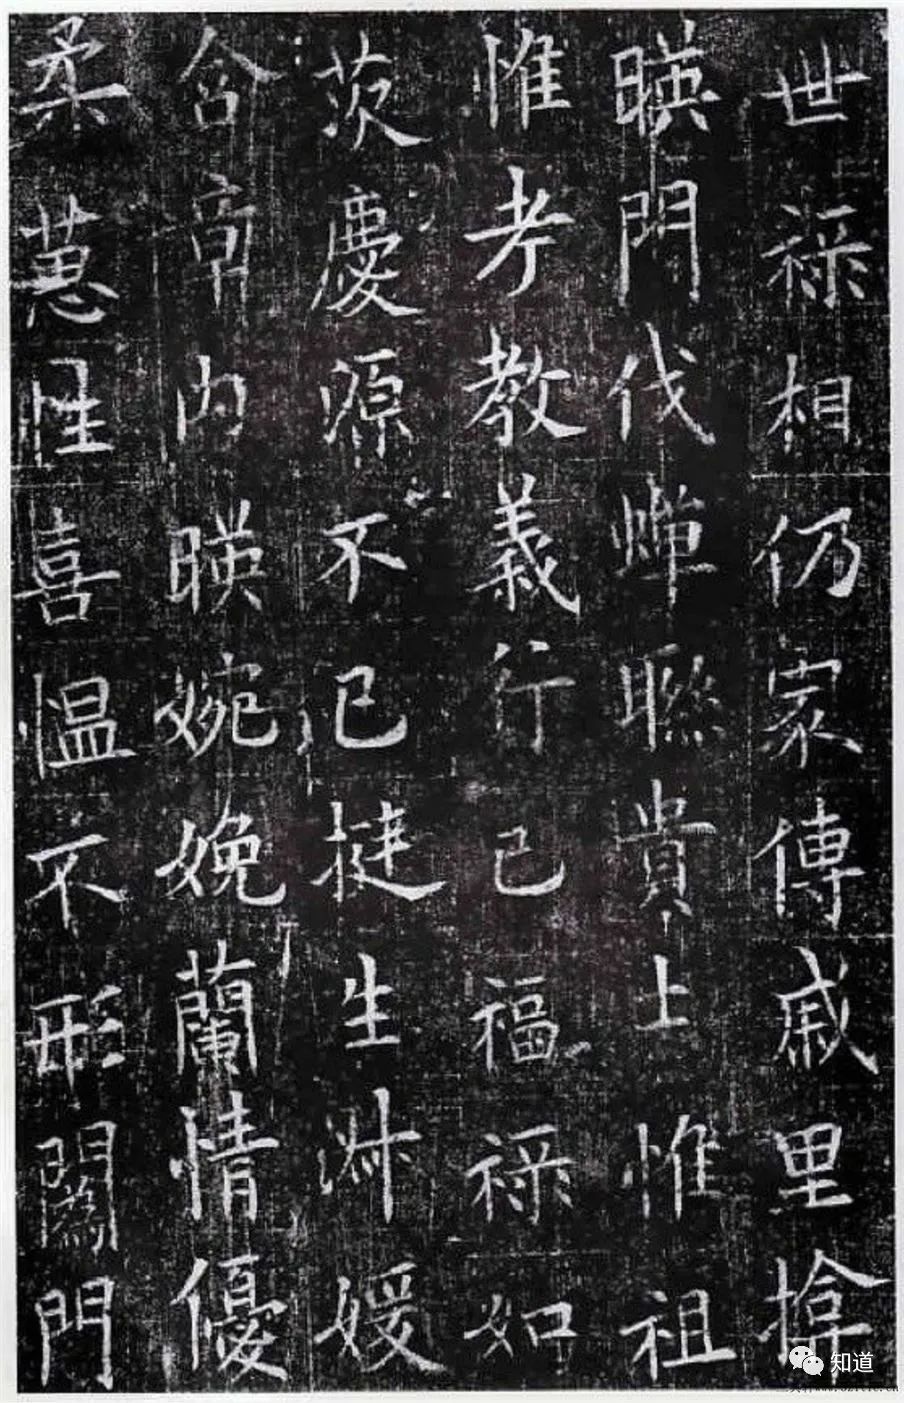 世祿相仍家傳戚里揜
暎門伐蟬聯貴上惟祖
惟考教義行己福祿如
茨慶源不已挺生淑媛
含章內暎婉娩蘭情優
柔蕙性喜慍不形闈門
知道